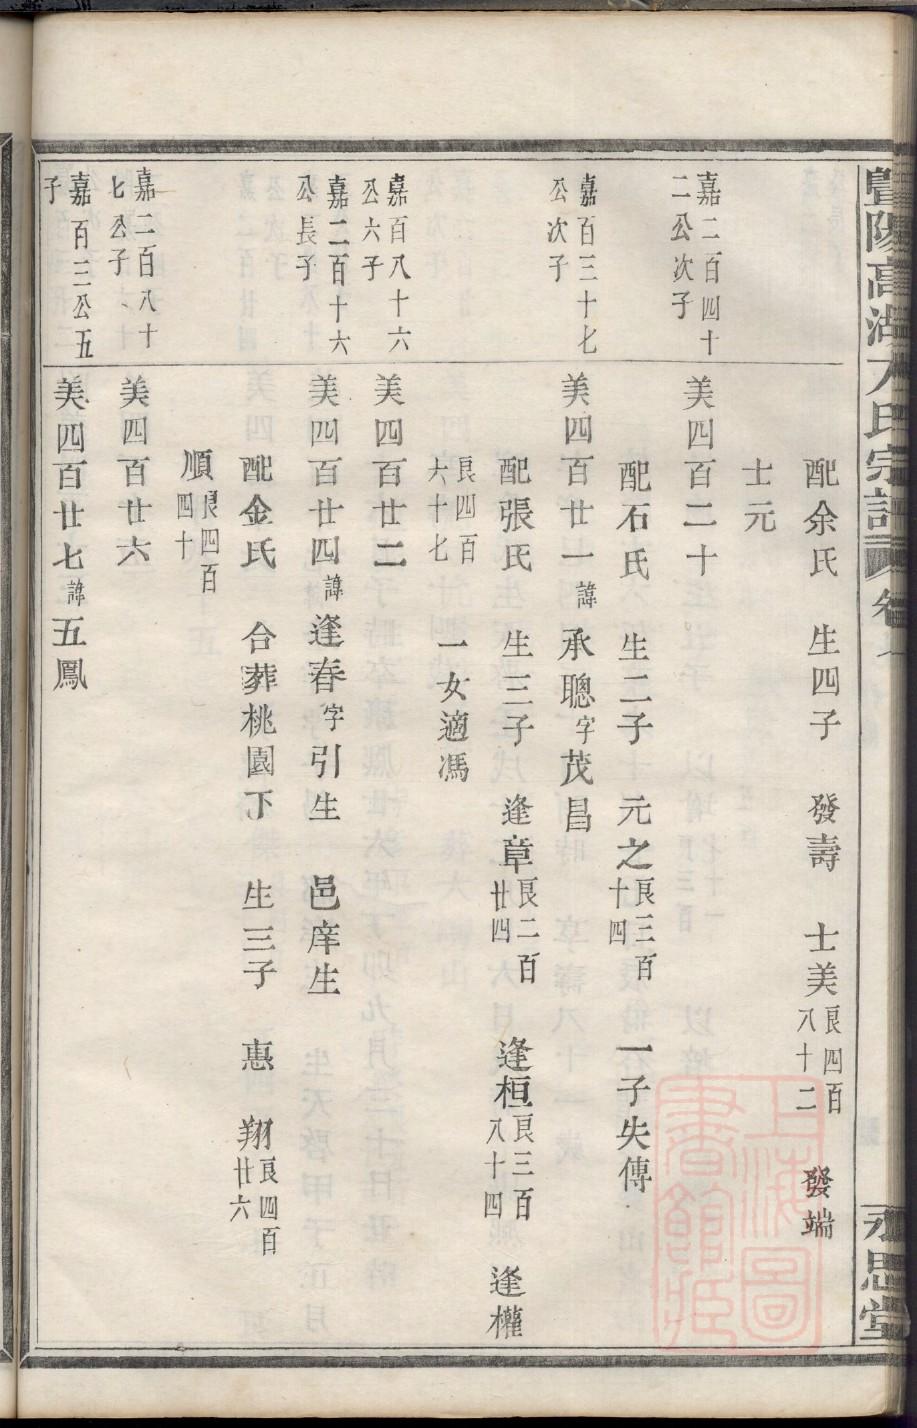 暨陽高湖 氏宗譜 卷 永思堂
配余氏 生四子 發壽 士美 良四百八十二 發端
士元
嘉二百四十二公次子 美四百二十
配石氏 生二子 元之 良三百十四 一子失傳
嘉百三十七公次子 美四百廿一 諱承聰字茂昌
配張氏 生三子 逢章 良二百廿四 逢桓 良三百八十四 逢權
良四百六十七 一女適馮
嘉百八十六公六子 美四百廿二
嘉二百十六公長子 美四百廿四 諱逢春字引生 邑庠生
配金氏 合葬桃園下 生三子 惠 翔 良四百廿六
順 良四百四十
嘉二百八十七公子 美四百廿六
嘉百三公五子 美四百廿七 諱五鳳
上海圖書館藏